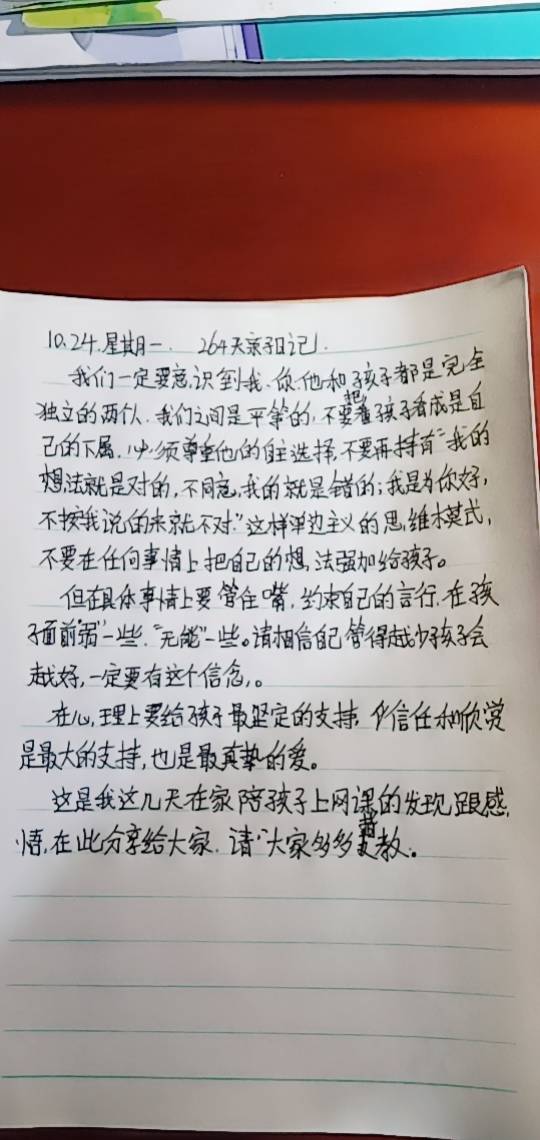 10.24.星期一. 264天亲子日记.
我们一定要意识到我、你、他和孩子都是完全
独立的两个人.我们之间是平等的,不要把孩子看成是自
己的下属.必须尊重他的自主选择,不要再持有“我的
想法就是对的,不同意我的就是错的;我是为你好,
不按我说的来就不对.”这样单边主义的思维模式,
不要在任何事情上把自己的想法强加给孩子。
但在具体事情上要管住嘴,约束自己的言行.在孩
子面前“弱”一些.“无能”一些。请相信自己管得越少孩子会
越好,一定要有这个信念。
在心理上要给孩子最坚定的支持.信任和欣赏
是最大的支持,也是最真挚的爱。
这是我这几天在家陪孩子上网课的发现跟感
悟,在此分享给大家.请大家多多指教。